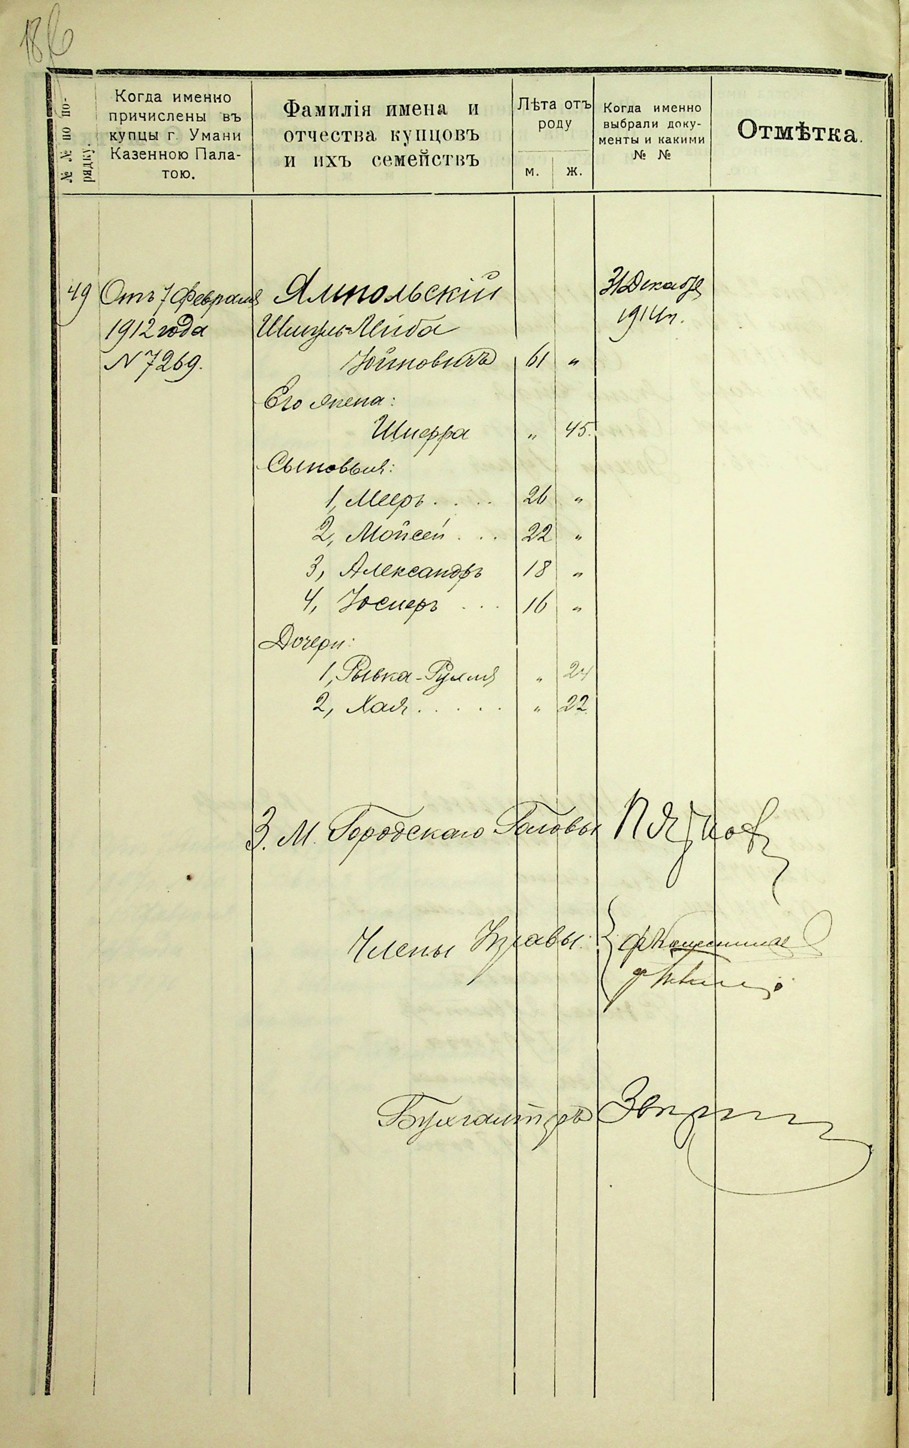 186
№ № по по-
рядку.
Когда именно
причислены въ
купцы г. Умани
Казенною Пала-
тою.
Фамилія имена и
отчества купцовъ
и ихъ семействъ
Лѣта отъ
роду
м. ж.
Когда именно
выбрали доку-
менты и какими
№ №
Отмѣтка.
49 Отъ 7 Февраля Ямпольскій 31 Декабр
1912 года Шмуль-Лейба 1914 г.
N 7269. Іойновичъ 61 „
Его жена:
Шифра „ 45.
Сыновья:
1, Мееръ.... 26 „
2, Мойсей... 22 „
3, Александръ 18 „
4, Іосперъ ... 16 „
Дочери:
1, Рывка-Рухля „ 24
2, Хая..... „ 22
З. М. Городскаго Головы
Члены Управы:
Бухгалтеръ